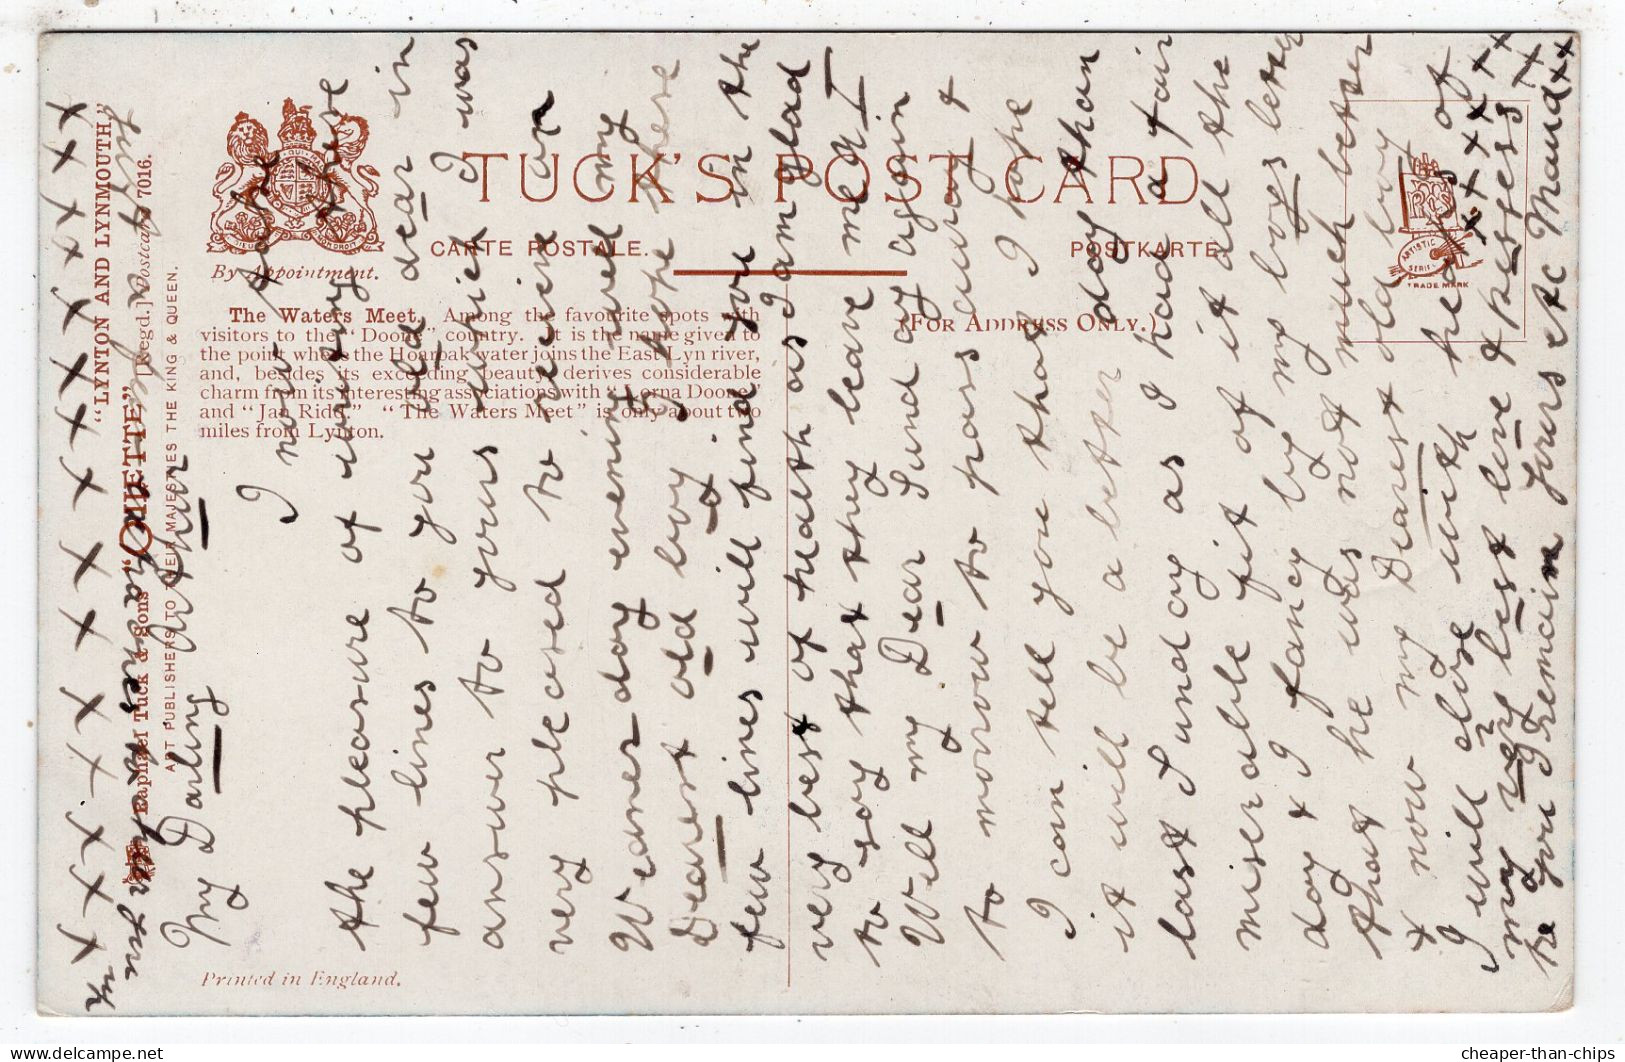 "LYNTON AND LYNMOUTH"
Raphael Tuck & Sons "OILETTE" [Regd.] Postcard 7016.
ART PUBLISHERS TO THEIR MAJESTIES THE KING & QUEEN.
By Appointment.
TUCK'S POST CARD
CARTE POSTALE. POSTKARTE
(FOR ADDRESS ONLY.)
ARTISTIC
SERIES
TRADE MARK
The Waters Meet. Among the favourite spots with
visitors to the "Doone" country. It is the name given to
the point where the Hoaroak water joins the East Lyn river,
and, besides its exceeding beauty, derives considerable
charm from its interesting associations with "Lorna Doone"
and "Jan Ridd." "The Waters Meet" is only about two
miles from Lynton.
Printed in England.
x x x x x x x x x x x x
My Darling Arthur
I now take
the pleasure of writing these
few lines to you old dear in
answer to yours which I was
very pleased to receive on
Wenesday evening well my
Dearest old boy I hope these
few lines will find you in the
very best of health as I am glad
to say that they leave me at I
Well my Dear Sunday again
to morrow to pass away &
I can tell you that I hope
it will be a better day than
last Sunday as I had a fair
miserable fit of it all the
day & I fancy by my boys letter
that he was not much better
& now my Dearest old boy
I will close with heaps of
my very best love & kisses
he you I remain yours etc Maud xx
x x x x x x x x